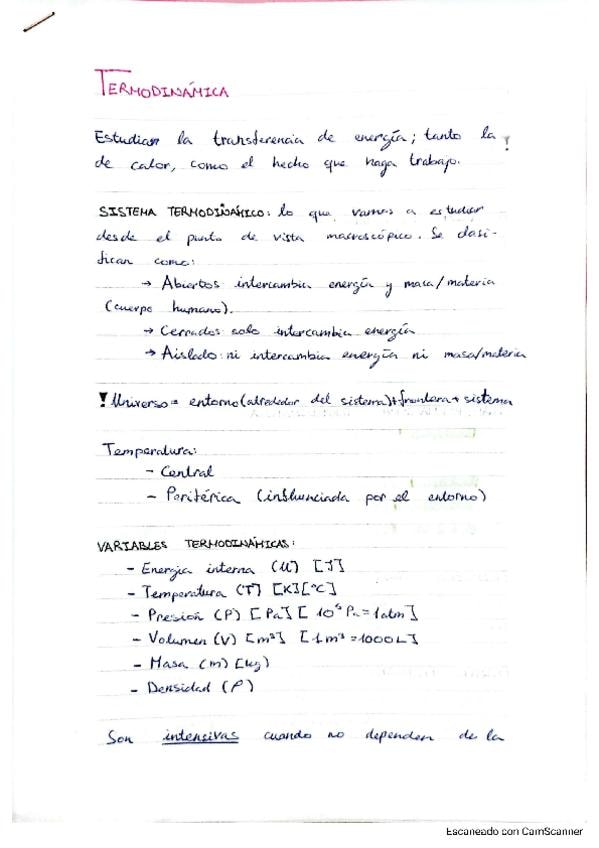 TERMODINÁMICA
Estudian la transferencia de energía; tanto la
de calor, como el hecho que haga trabajo.
!
SISTEMA TERMODINÁMICO: lo que vamos a estudiar
desde el punto de vista macroscópico. Se clasi-
fican como:
→ Abiertos intercambia energía y masa/materia
(cuerpo humano).
→ Cerrados solo intercambia energía
→ Aislado: ni intercambia energía ni masa/materia
! Universo = entorno (alrededor del sistema) + frontera + sistema
Temperatura:
- Central
- Periférica (influnciada por el entorno)
VARIABLES TERMODINÁMICAS:
- Energía interna (U) [J]
- Temperatura (T) [K] [°C]
- Presión (P) [Pa] [10⁵ Pa = 1 atm]
- Volumen (V) [m³] [1 m³ = 1000 L]
- Masa (m) [kg]
- Densidad (ρ)
Son intensivas cuando no dependen de la
Escaneado con CamScanner